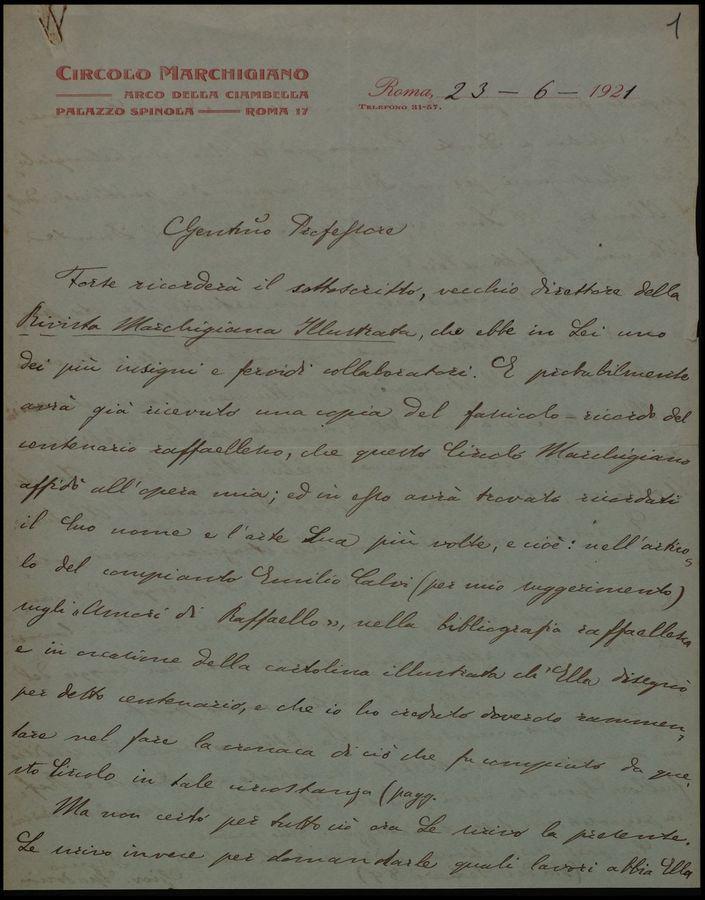 1
CIRCOLO MARCHIGIANO
ARCO DELLA CIAMBELLA
PALAZZO SPINOLA — ROMA 17
Roma, 23 - 6 - 1921
TELEFONO 31-57.
Gentmo Professore
Forse ricorderà il sottoscritto, vecchio direttore della
Rivista Marchigiana Illustrata, che ebbe in Lei uno
dei più insigni e fervidi collaboratori. E probabilmente
avrà già ricevuto una copia del fascicolo-ricordo del
centenario raffaellesco, che questo Circolo Marchigiano
affidò all'opera mia; ed in esso avrà trovato ricordati
il Suo nome e l'arte Sua più volte, e cioè: nell'artico-
lo del compianto Emilio Calvi (per mio suggerimento)
sugli «Amori di Raffaello», nella bibliografia raffaellesca
e in occasione della cartolina illustrata ch'Ella disegnò
per detto centenario, e che io ho creduto doveroso rammen-
tare nel fare la cronaca di ciò che fu compiuto da que-
sto Circolo in tale circostanza (pagg.
Ma non certo per tutto ciò ora Le scrivo la presente.
Le scrivo invece per domandarle quali lavori abbia Ella